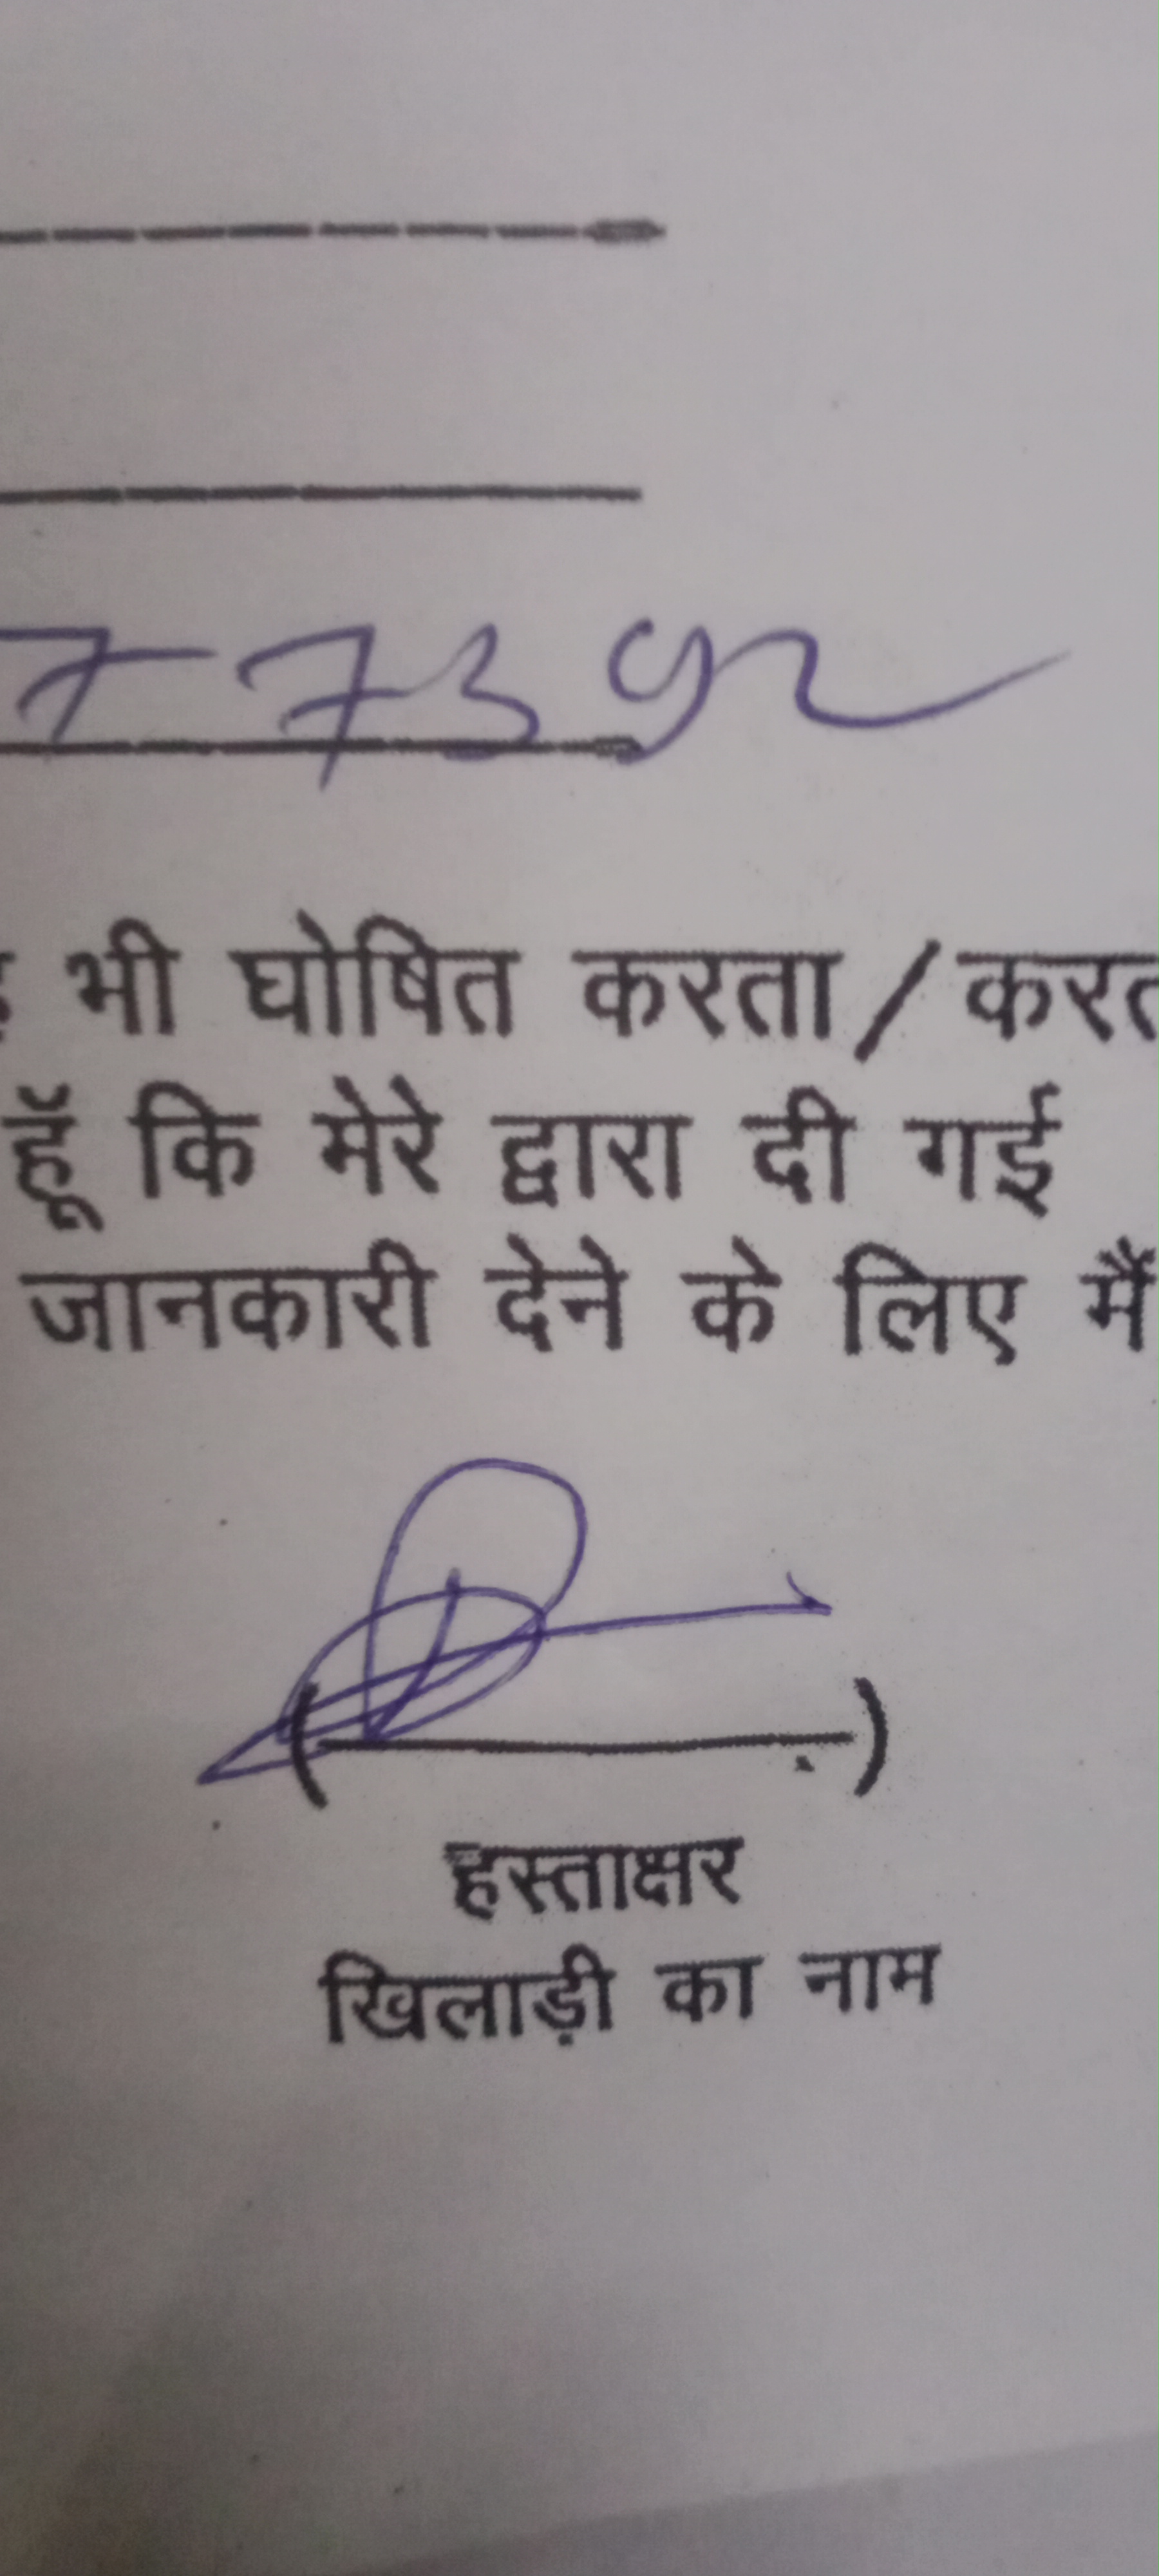 7-7392
भी घोषित करता/करत
हूॅ कि मेरे द्वारा दी गई
जानकारी देने के लिए मैं
(__________)
हस्ताक्षर
खिलाड़ी का नाम